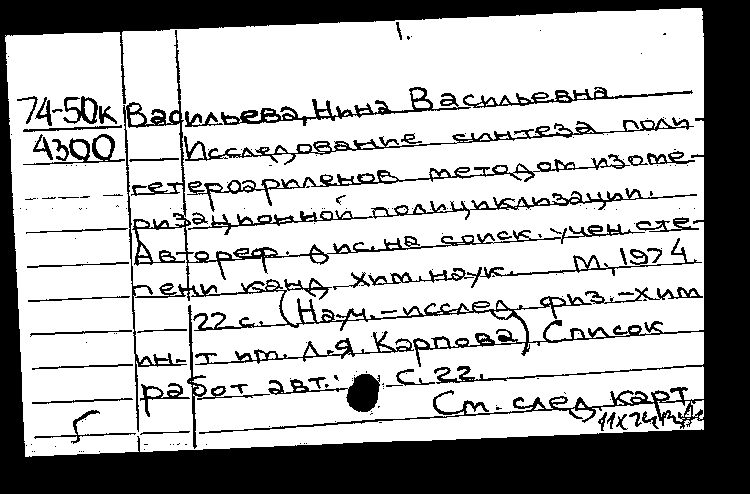 1.
74-50к Васильева, Нина Васильевна
4300 Исследование синтеза поли-
гетероариленов методом изоме-
ризационной полициклизации.
Автореф. дис. на соиск. учен. сте-
пени канд. хим. наук. М., 1974.
22 с. (Науч.-исслед. физ.-хим
ин-т им. Л.Я. Карпова). Список
работ авт.: с. 22.
См. след карт.